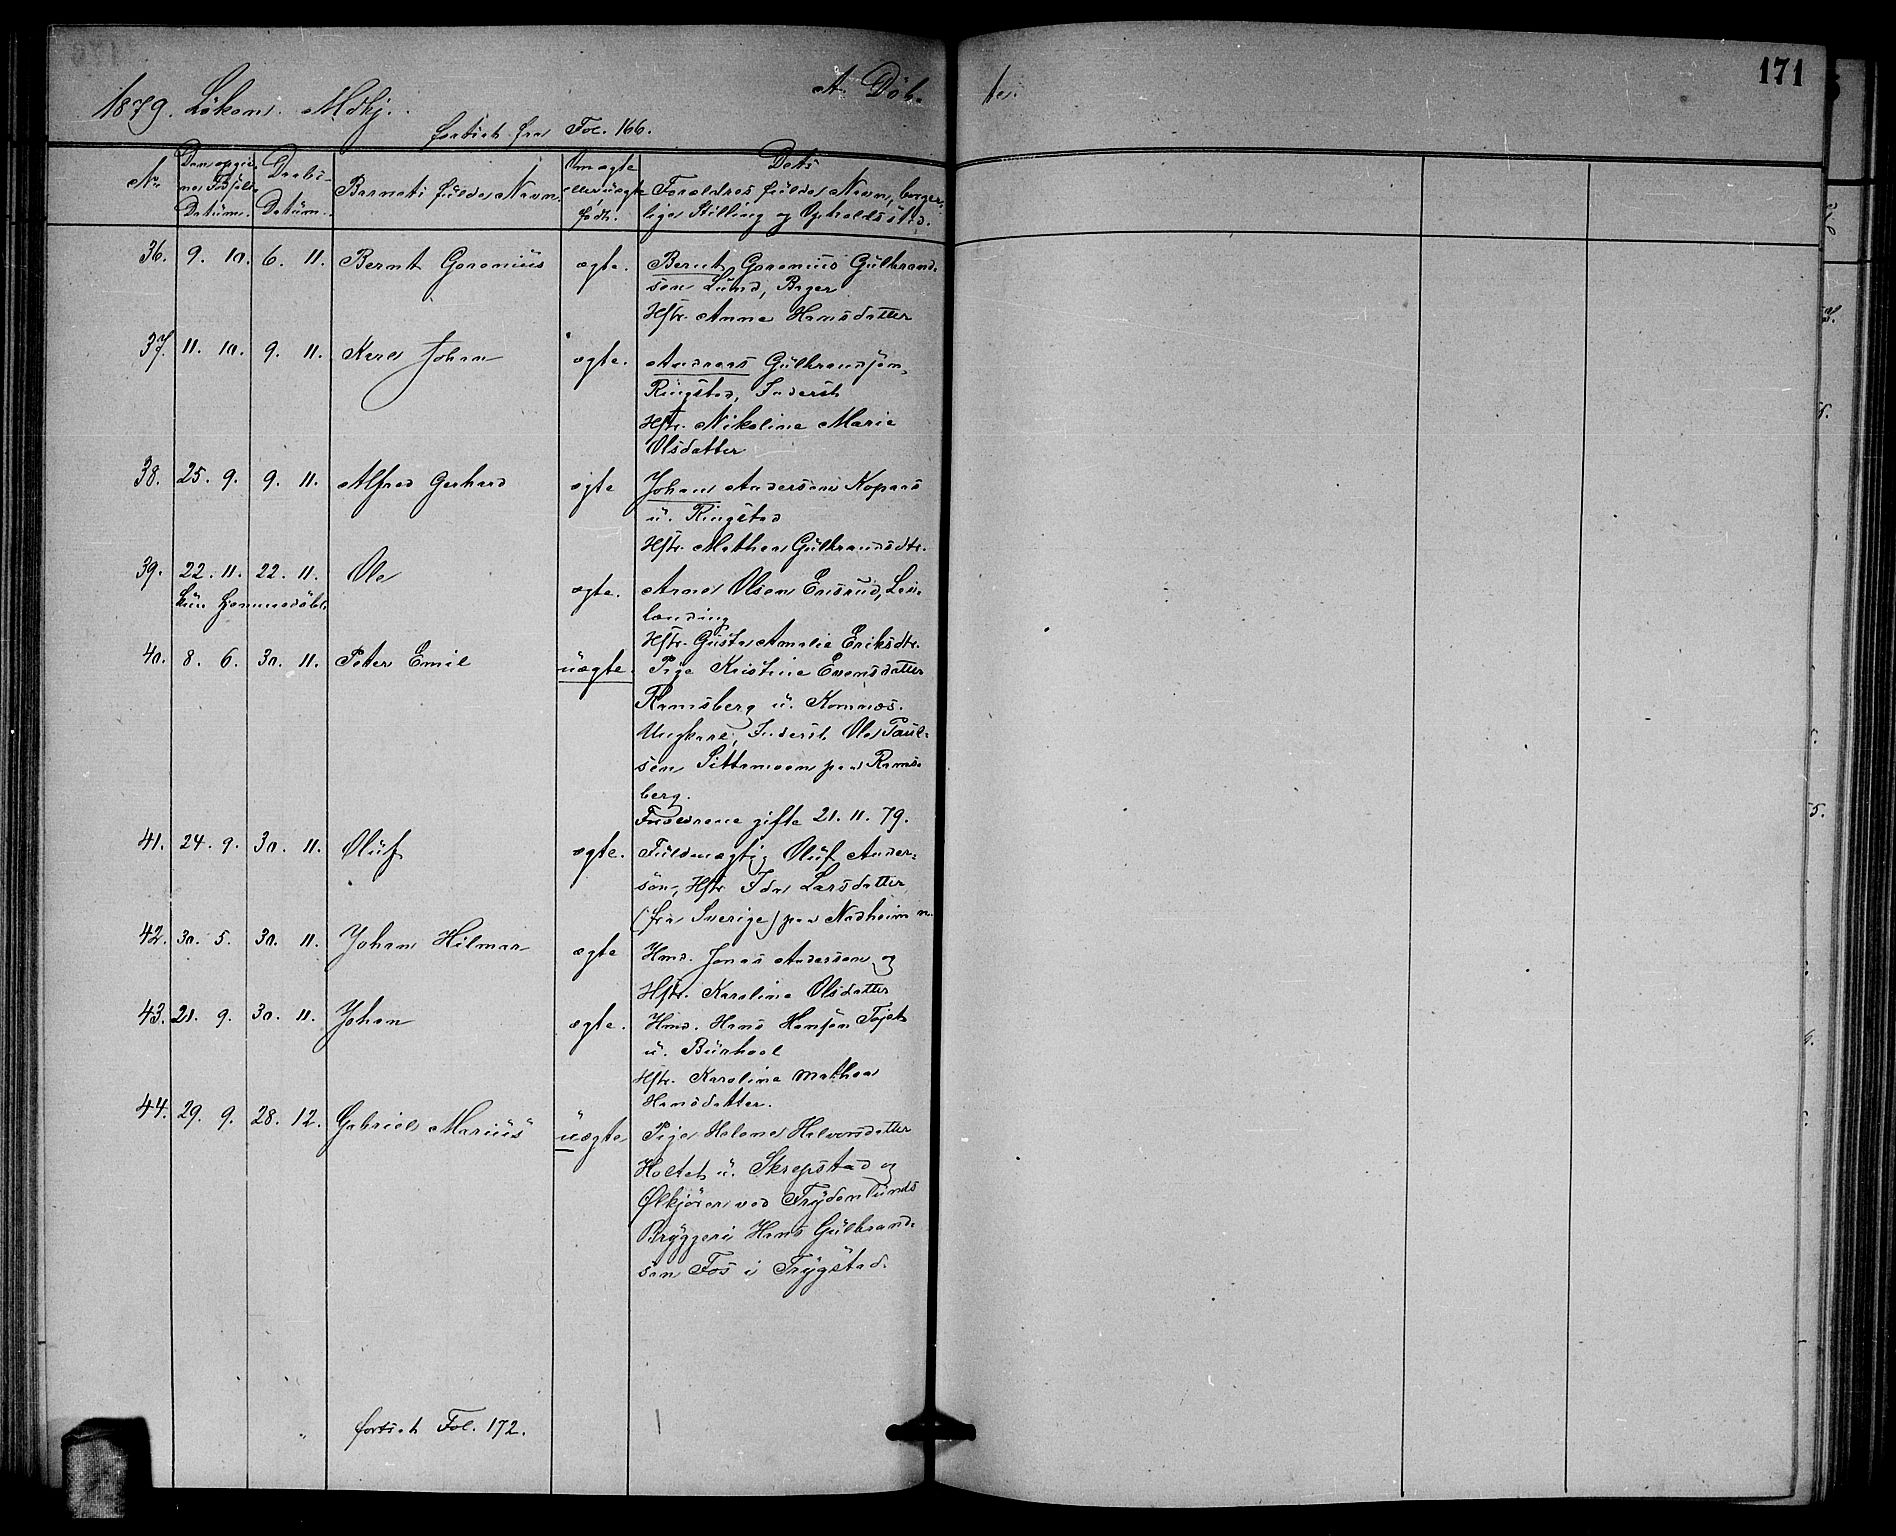 171
1879. Løkens Mdkj. A. Döb- te.
fortsat fra Fol. 166.
No Den opgivne Fødsels Datum. Daabs-Datum. Barnets fulde Navn. Om ægte eller uægte født. Dets Forældres fulde Navn, borgerlige Stilling og Opholdssted.
36. 9. 10. 6. 11. Bernt Goronius ægte. Bernt Goronius Gulbrand-
sen Lund, Bager
Hstr. Anne Hansdatter
37. 11. 10. 9. 11. Karl Johan ægte. Andreas Gulbrandsen
Ringstad, Inderst
Hstr. Nikoline Marie
Olsdatter
38. 25. 9. 9. 11. Alfred Gerhard ægte Johan Andersen Kopaas
u. Ringstad
Hstr. Mathea Gulbrandsdtr.
39. 22. 11. 22. 11. Ole ægte. Arne Olsen Ensrud, Lei-
kun hjemmedöbt lænding
Hstr. Gusta Amalie Eriksdtr.
40. 8. 6. 30. 11. Peter Emil uægte. Pige Kristine Evensdatter
Ramsberg u. Komnæs.
Ungkarl, Inderst Ole Paul-
sen Sittamoen paa Rams-
berg.
Forældrene gifte 21. 11. 79.
41. 24. 9. 30. 11. Oluf ægte. Fuldmægtig Oluf Ander-
son, Hstr Ida Larsdatter
(fra Sverige) paa Nadheim
42. 30. 5. 30. 11. Johan Hilmar ægte Hmd. Jonas Andersen og
Hstr. Karoline Olsdatter
43. 21. 9. 30. 11. Johan ægte. Hmd. Hans Hansen Tajet
u. Burhol
Hstr. Karoline Mathea
Hansdatter.
44. 29. 9. 28. 12. Gabriel Marius uægte Pige Helene Halvorsdatter
Holtet u. Skrepstad og
Ølkjører ved Frydenlunds
Bryggeri Hans Gulbrand-
sen Fos i Trygstad.
fortsat Fol. 172.